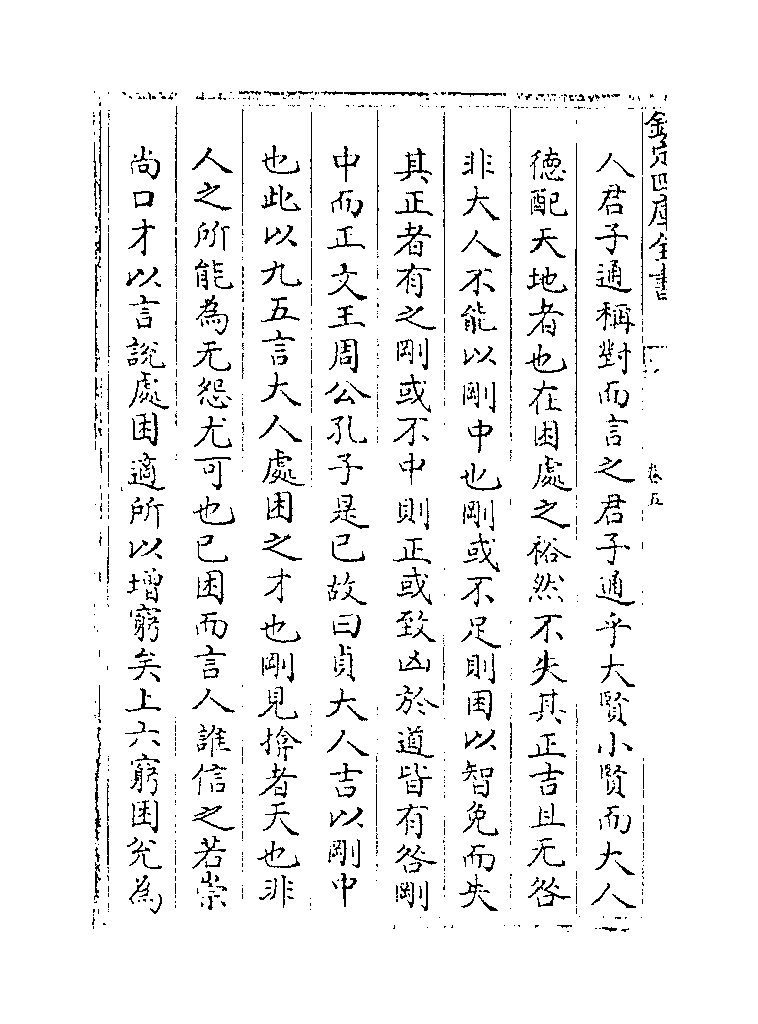 欽定四庫全書
卷五
人君子通稱對而言之君子通乎大賢小賢而大人
德配天地者也在困處之裕然不失其正吉且无咎
非大人不能以剛中也剛或不足則困以智免而失
其正者有之剛或不中則正或致凶於道皆有咎剛
中而正文王周公孔子是已故曰貞大人吉以剛中
也此以九五言大人處困之才也剛見揜者天也非
人之所能為无怨尤可也已困而言人誰信之若崇
尚口才以言說處困適所以增窮矣上六窮困兊為